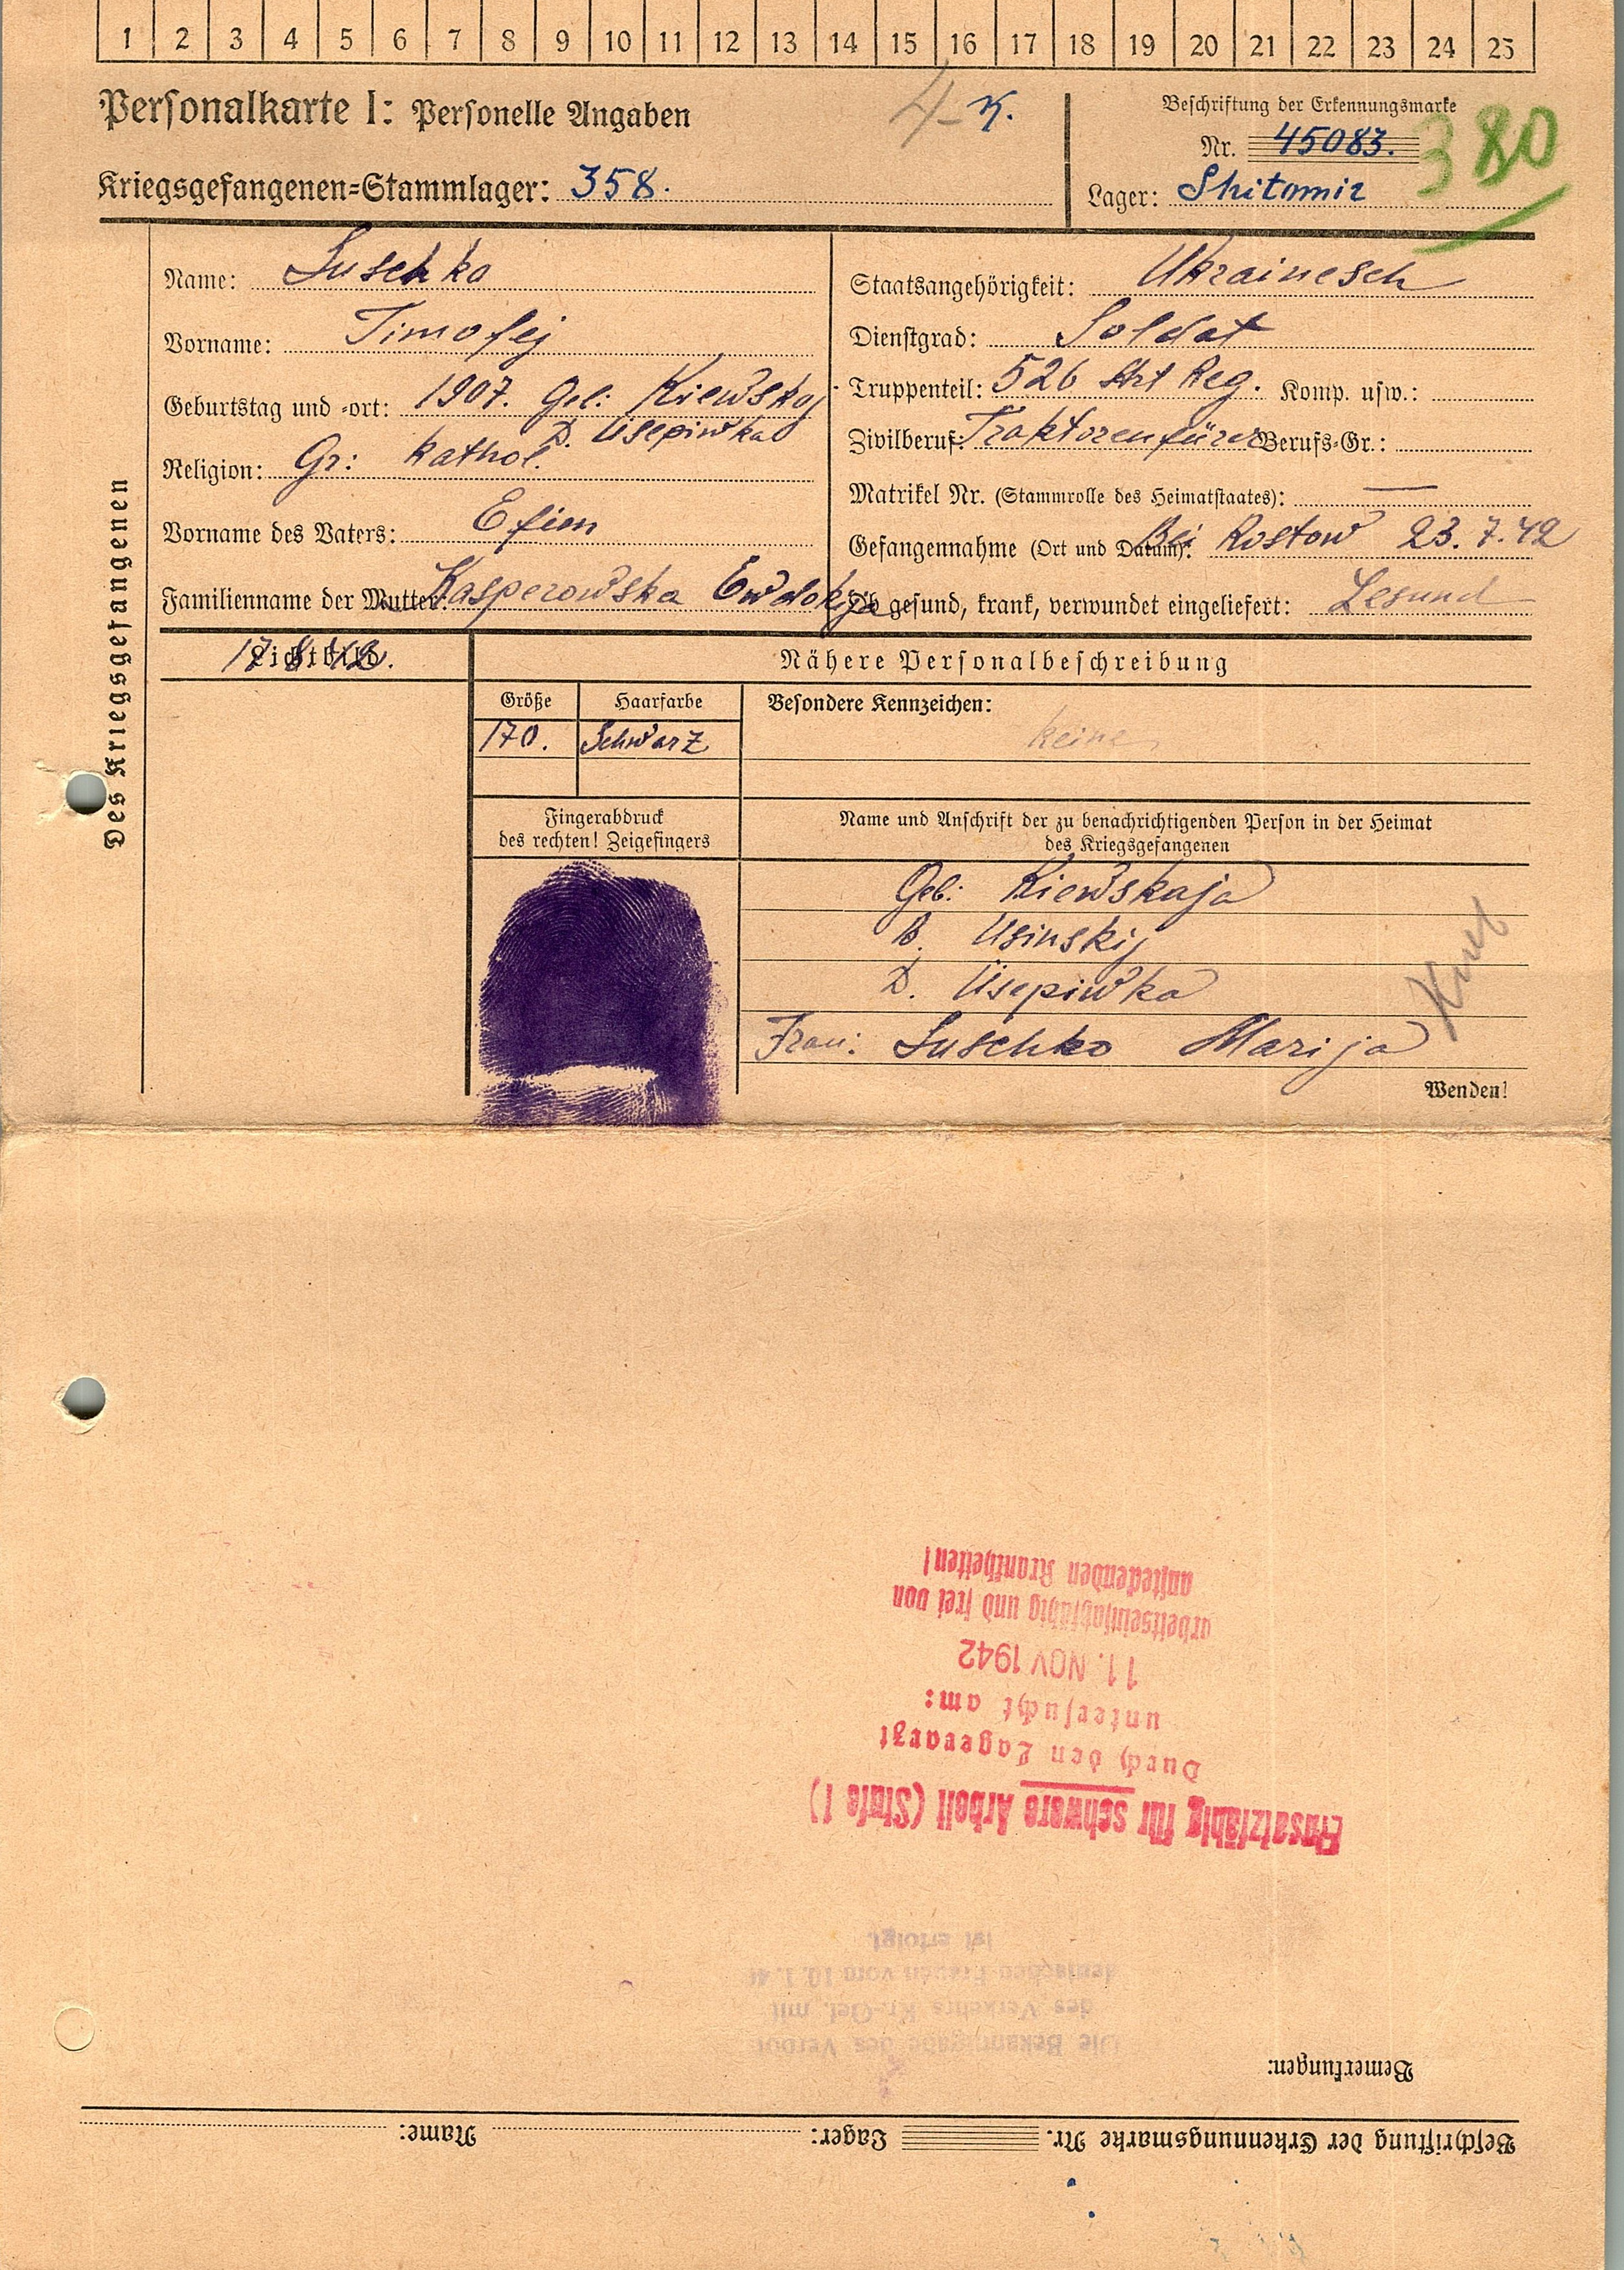 1 2 3 4 5 6 7 8 9 10 11 12 13 14 15 16 17 18 19 20 21 22 23 24 25
Personalkarte I: Personelle Angaben
4- K.
Beschriftung der Erkennungsmarke
Nr. 45083.
380
Kriegsgefangenen=Stammlager: 358.
Lager: Shitomir
Des Kriegsgefangenen
Name: Luschko
Vorname: Timofej
Geburtstag und =ort: 1907. Geb: Kiewskaj
D. Usepiwka
Religion: Gr: kathol.
Vorname des Vaters: Efim
Familienname der Mutter: Kasperowska Ewdokija
Staatsangehörigkeit: Ukrainesch
Dienstgrad: Soldat
Truppenteil: 526 Art Reg. Komp. usw.:
Zivilberuf: Traktorenfürer Berufs=Gr.:
Matrikel Nr. (Stammrolle des Heimatstaates): —
Gefangennahme (Ort und Datum): Bei Rostow 23.7.42
Ob gesund, krank, verwundet eingeliefert: Gesund
Lichtbild
17 8 42.
Nähere Personalbeschreibung
Größe Haarfarbe Besondere Kennzeichen:
170. Schwarz keine
Fingerabdruck
des rechten! Zeigefingers
Name und Anschrift der zu benachrichtigenden Person in der Heimat
des Kriegsgefangenen
Geb: Kiewskaja
B. Usinskij
D. Usepiwka
Frau: Luschko Marija
Wenden!
Beschriftung der Erkennungsmarke Nr. Lager: Name:
Bemerkungen:
Die Bekanntgabe des Verbot
des Verkehrs Kr.-Gef. mit
deutschen Frauen vom 10.1.40
ist erfolgt.
Einsatzfähig für schwere Arbeit (Stufe I)
Durch den Lagerarzt
untersucht am:
11. NOV 1942
arbeitseinsatzfähig und frei von
ansteckenden Krankheiten!